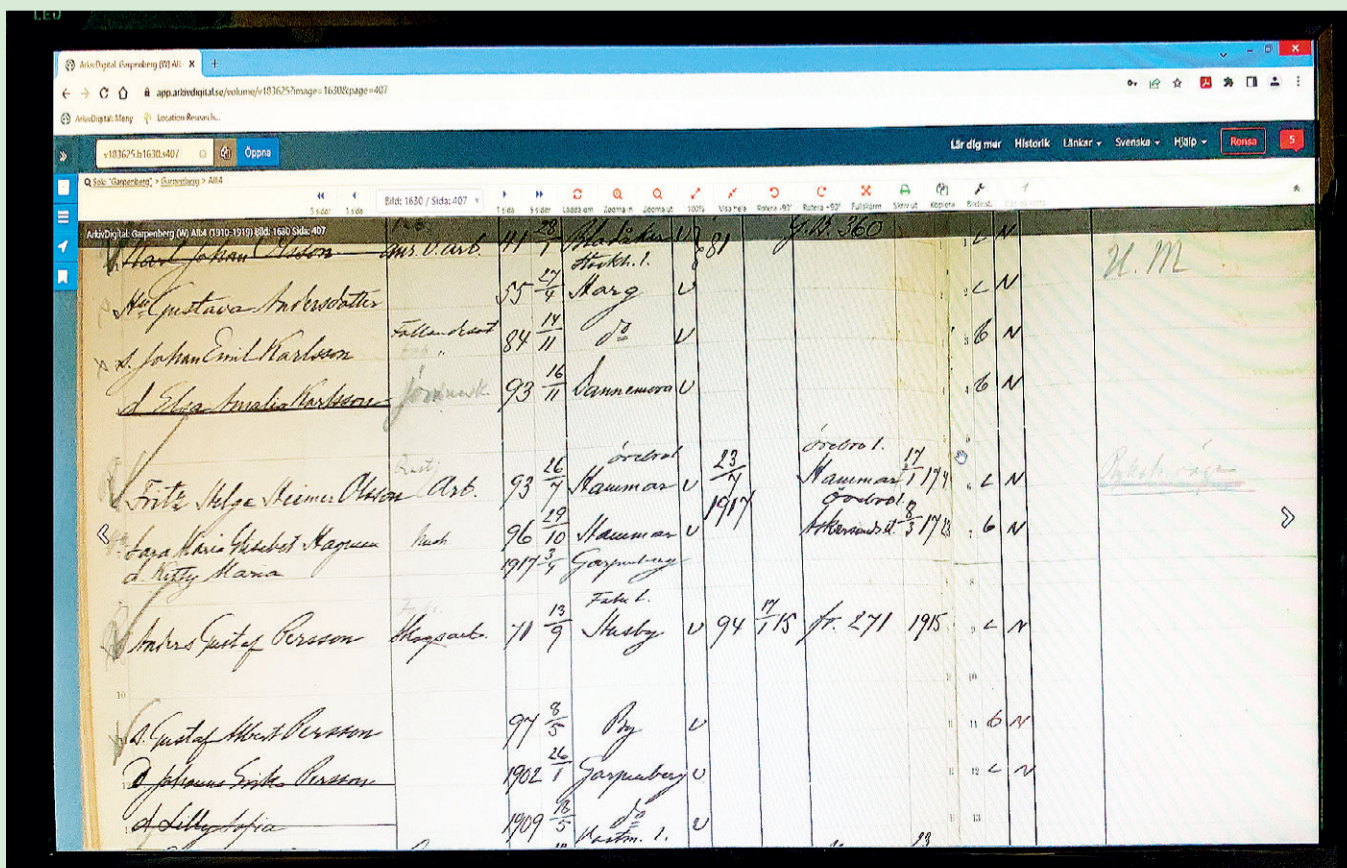 LEO
ArkivDigital: Garpenberg (W) AII
app.arkivdigital.se/volume/v183625?image=1630&page=407
ArkivDigital: Meny Location Research...
v183625.b1630.s407 Öppna Lär dig mer Historik Länkar Svenska Hjälp Rensa 5
Sök: "Garpenberg" > Garpenberg > AIIA
5 sidor 1 sida Bild: 1630 / Sida: 407 1 sida 5 sidor Ladda om Zooma in Zooma ut 100% Visa hela Rotera -90° Rotera +90° Fullskärm Skriv ut Kopiera Bildinst.
ArkivDigital: Garpenberg (W) AIIb4 (1910-1919) Bild: 1630 Sida: 407
Karl Johan Olsson 41 28 81 360 1 L N
Stockh. l. U. M
Hu Gustava Andersdotter 55 27/4 Harg v 2 L N
s. Johan Emil Karlsson 84 14/11 do v 3 6 N
d. Elsa Amalia Karlsson 93 16/11 Dannemora v 4 6 N
örebro l. örebro l.
Fritz Helge Heimer Olsson Arb. 93 26/7 Hammar v 23/7 1917 Hammar 17/1 17 6 L N
örebro l.
Sara Maria Elisabet Hagman 96 29/10 Hammar v Askersund 8/3 17 7 6 N
d. Kitty Maria 1917 3/4 Garpenberg 8
Anders Gustaf Persson Skogsarb. 71 13/9 Husby v 94 17/1 15 fr. 271 1915 9 L N
10 10
s. Gustaf Albert Persson 97 8/5 By v 11 6 N
Johannes Erik Persson 1902 26/1 Garpenberg v 12 L N
d. Lilly Sofia 1909 18/5 do v 13
Vastm. l.